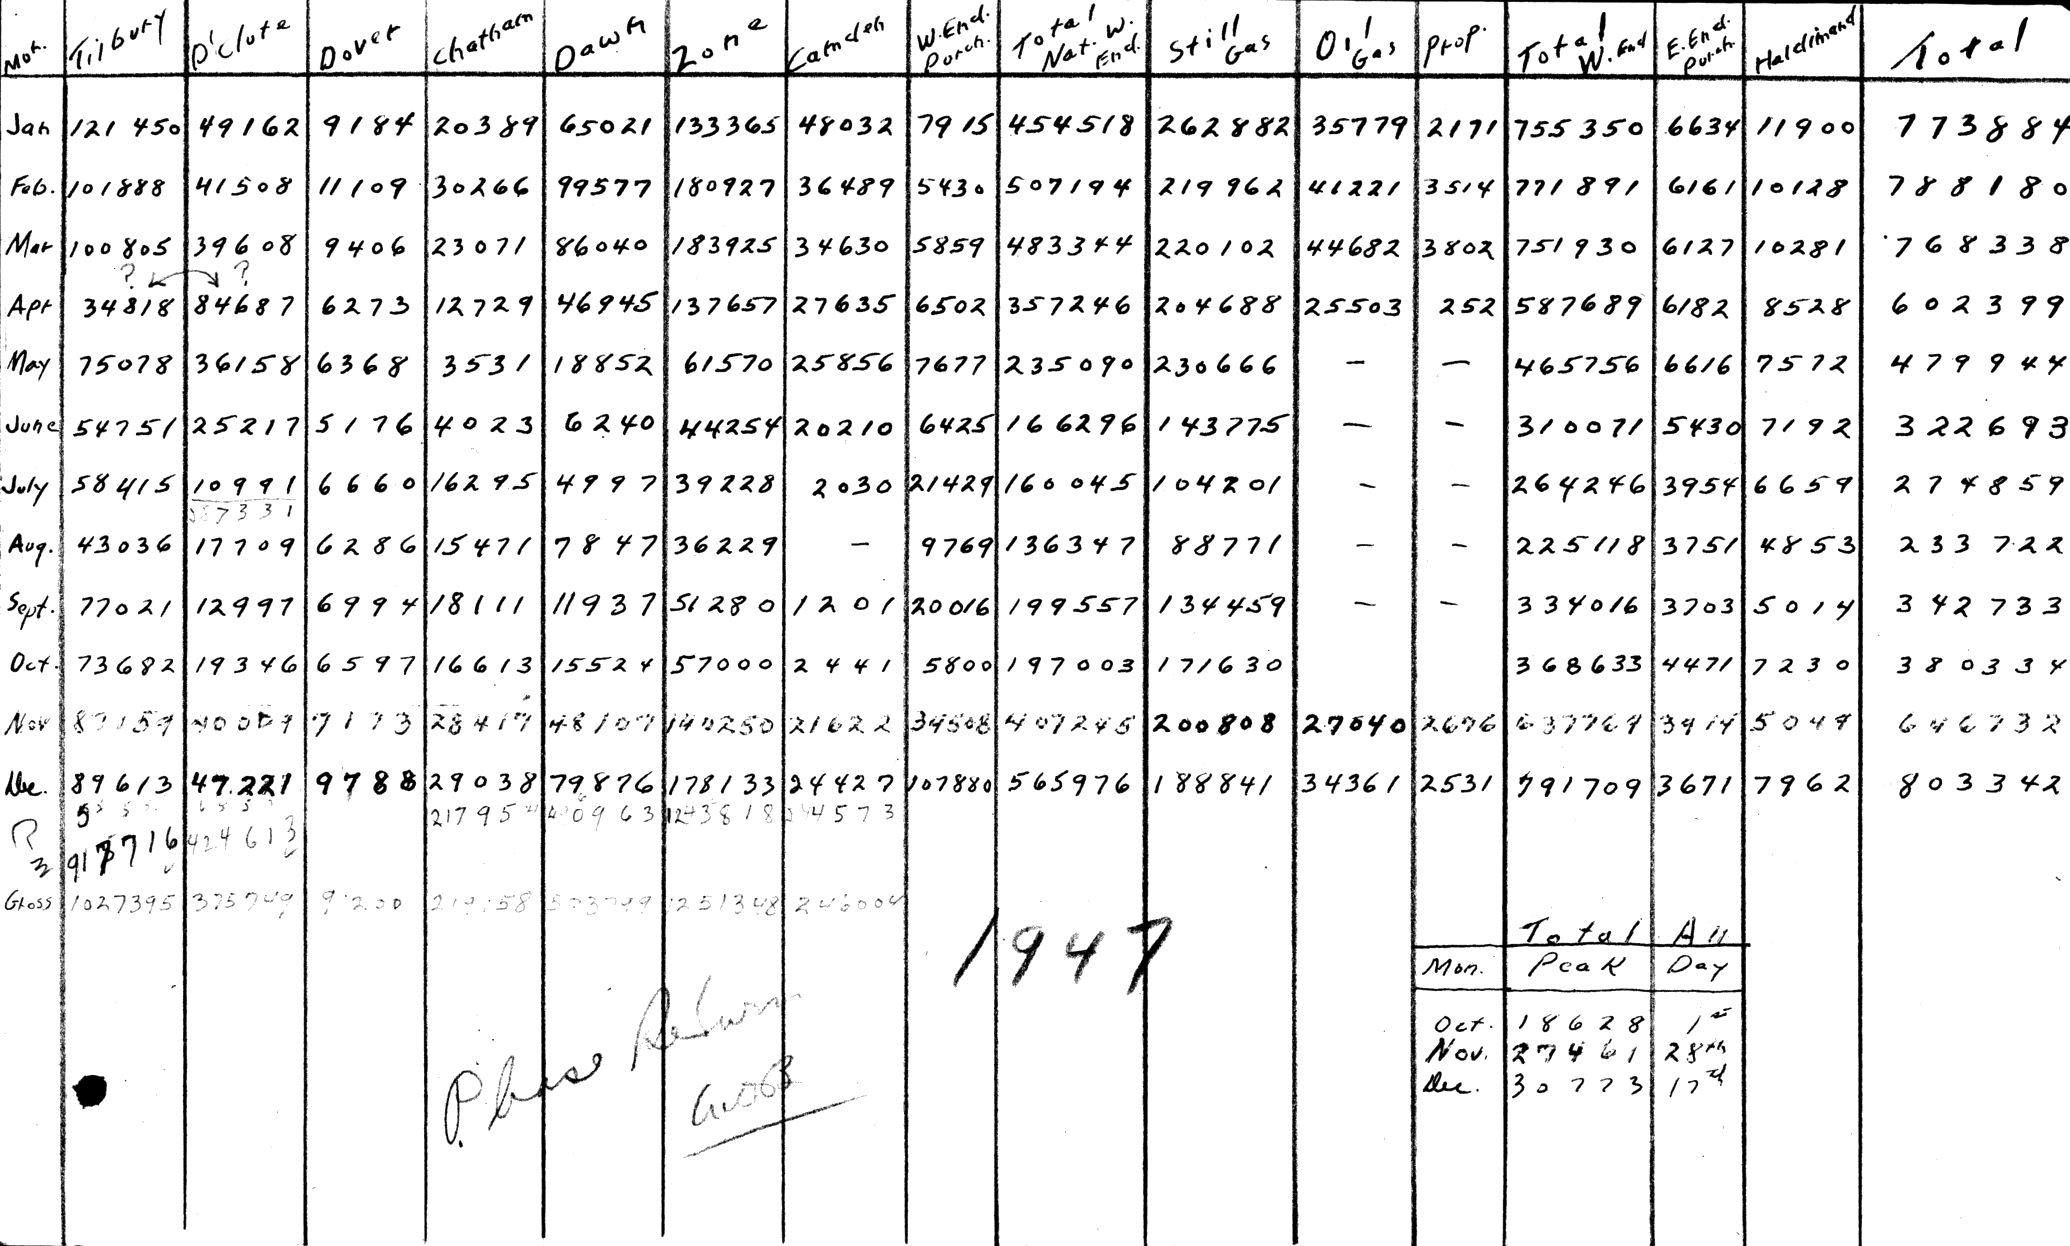 Mon. Tilbury D'Clute Dover Chatham Dawn Zone Camden W.End. Purch. Total Nat. W. End. Still Gas Oil Gas Prop. Total W. End E. End. Purch. Haldimand Total
Jan 121450 49162 9184 20389 65021 133365 48032 7915 454518 262882 35779 2171 755350 6634 11900 773884
Feb. 101888 41508 11109 30266 99577 180927 36489 5430 507194 219962 41221 3514 771891 6161 10128 788180
Mar 100805 39608 9406 23071 86040 183925 34630 5859 483344 220102 44682 3802 751930 6127 10281 768338
? ?
Apr 34818 84687 6273 12729 46945 137657 27635 6502 357246 204688 25503 252 587689 6182 8528 602399
May 75078 36158 6368 3531 18852 61570 25856 7677 235090 230666 — — 465756 6616 7572 479944
June 54751 25217 5176 4023 6240 44254 20210 6425 166296 143775 — — 310071 5430 7192 322693
July 58415 10991 6660 16295 4997 39228 2030 21429 160045 104201 — — 264246 3954 6659 274859
Aug. 43036 17709 6286 15471 7847 36229 — 9769 136347 88771 — — 225118 3751 4853 233722
Sept. 77021 12997 6994 18111 11937 51280 1201 20016 199557 134459 — — 334016 3703 5014 342733
Oct. 73682 19346 6597 16613 15524 57000 2441 5800 197003 171630 368633 4471 7230 380334
Nov 87159 40009 7173 28417 48107 140250 21622 34508 407245 200808 27040 2676 637769 3914 5049 646732
Dec. 89613 47221 9788 29038 79876 178133 24427 107880 565976 188841 34361 2531 791709 3671 7962 803342
217954 1243818
424613
Gross 1027395 375749 1251348 246004
1947
Please Return
Total All
Mon. Peak Day
Oct. 18628 1st
Nov. 27461 28th
Dec. 30773 17th